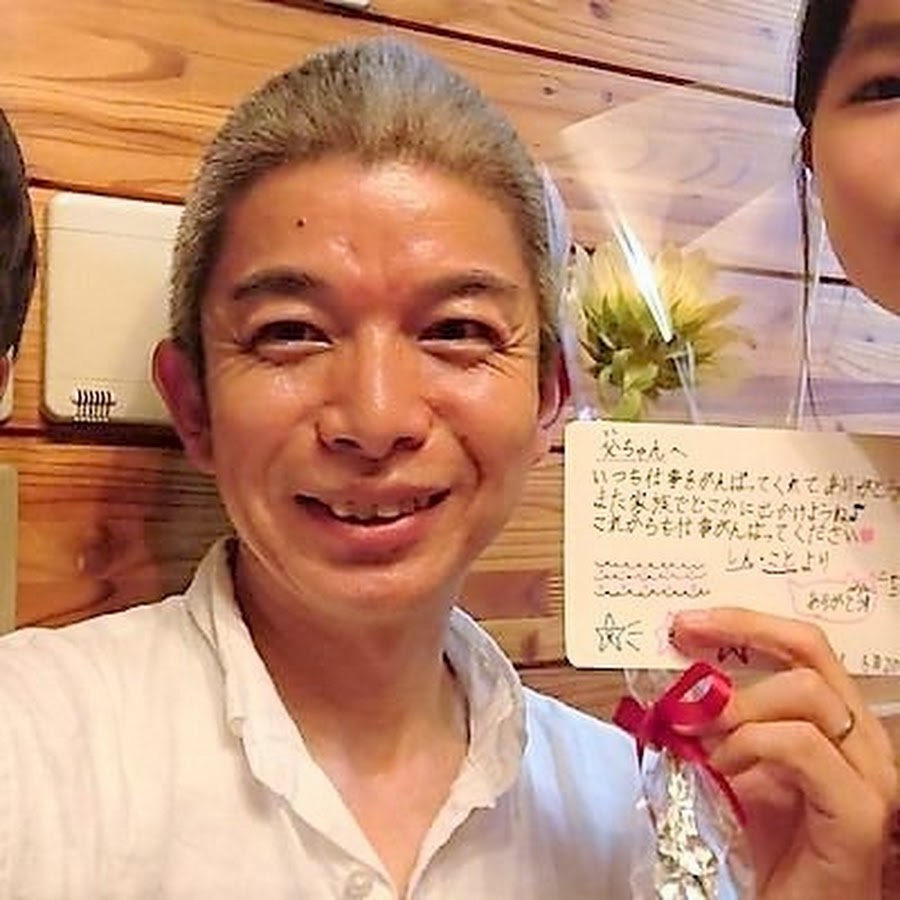 父ちゃんへ
いつも仕事をがんばってくれてありがとう
また家族でどこかに出かけようね♪
これからも仕事がんばってください
しん・ことより
ありがとう